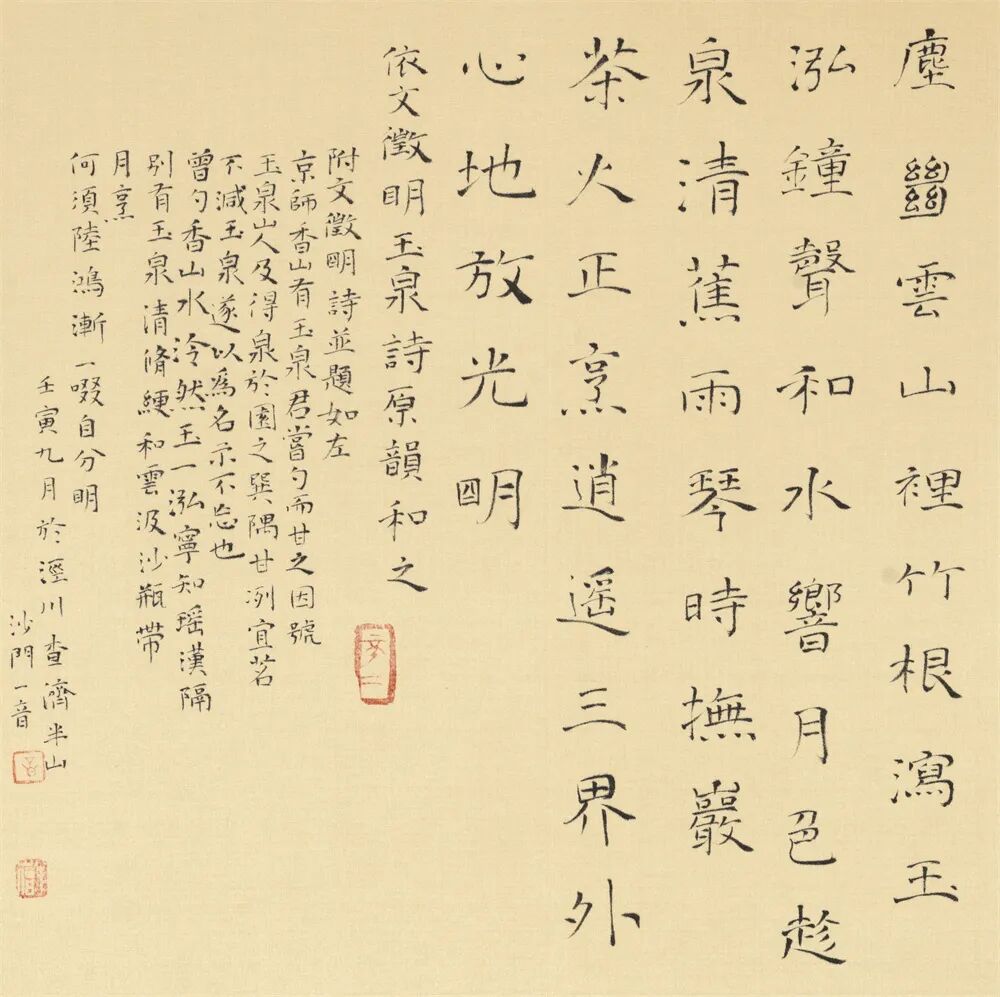 塵𢇍雲山裡竹根瀉玉
泓鐘聲和水響月色趁
泉清蕉雨琴時撫巖
茶火正烹逍遥三界外
心地放光明
依文徵明玉泉詩原韻和之
附文徵明詩並題如左
京師香山有玉泉君嘗勺而甘之因號
玉泉山人及得泉於園之巽隅甘冽宜茗
不減玉泉遂以爲名示不忘也
曾勺香山水泠然玉一泓寧知瑶漢隔
別有玉泉清脩綆和雲汲沙瓶帶
月烹
何須陸鴻漸一啜自分明
壬寅九月於涇川查濟半山
沙門一音